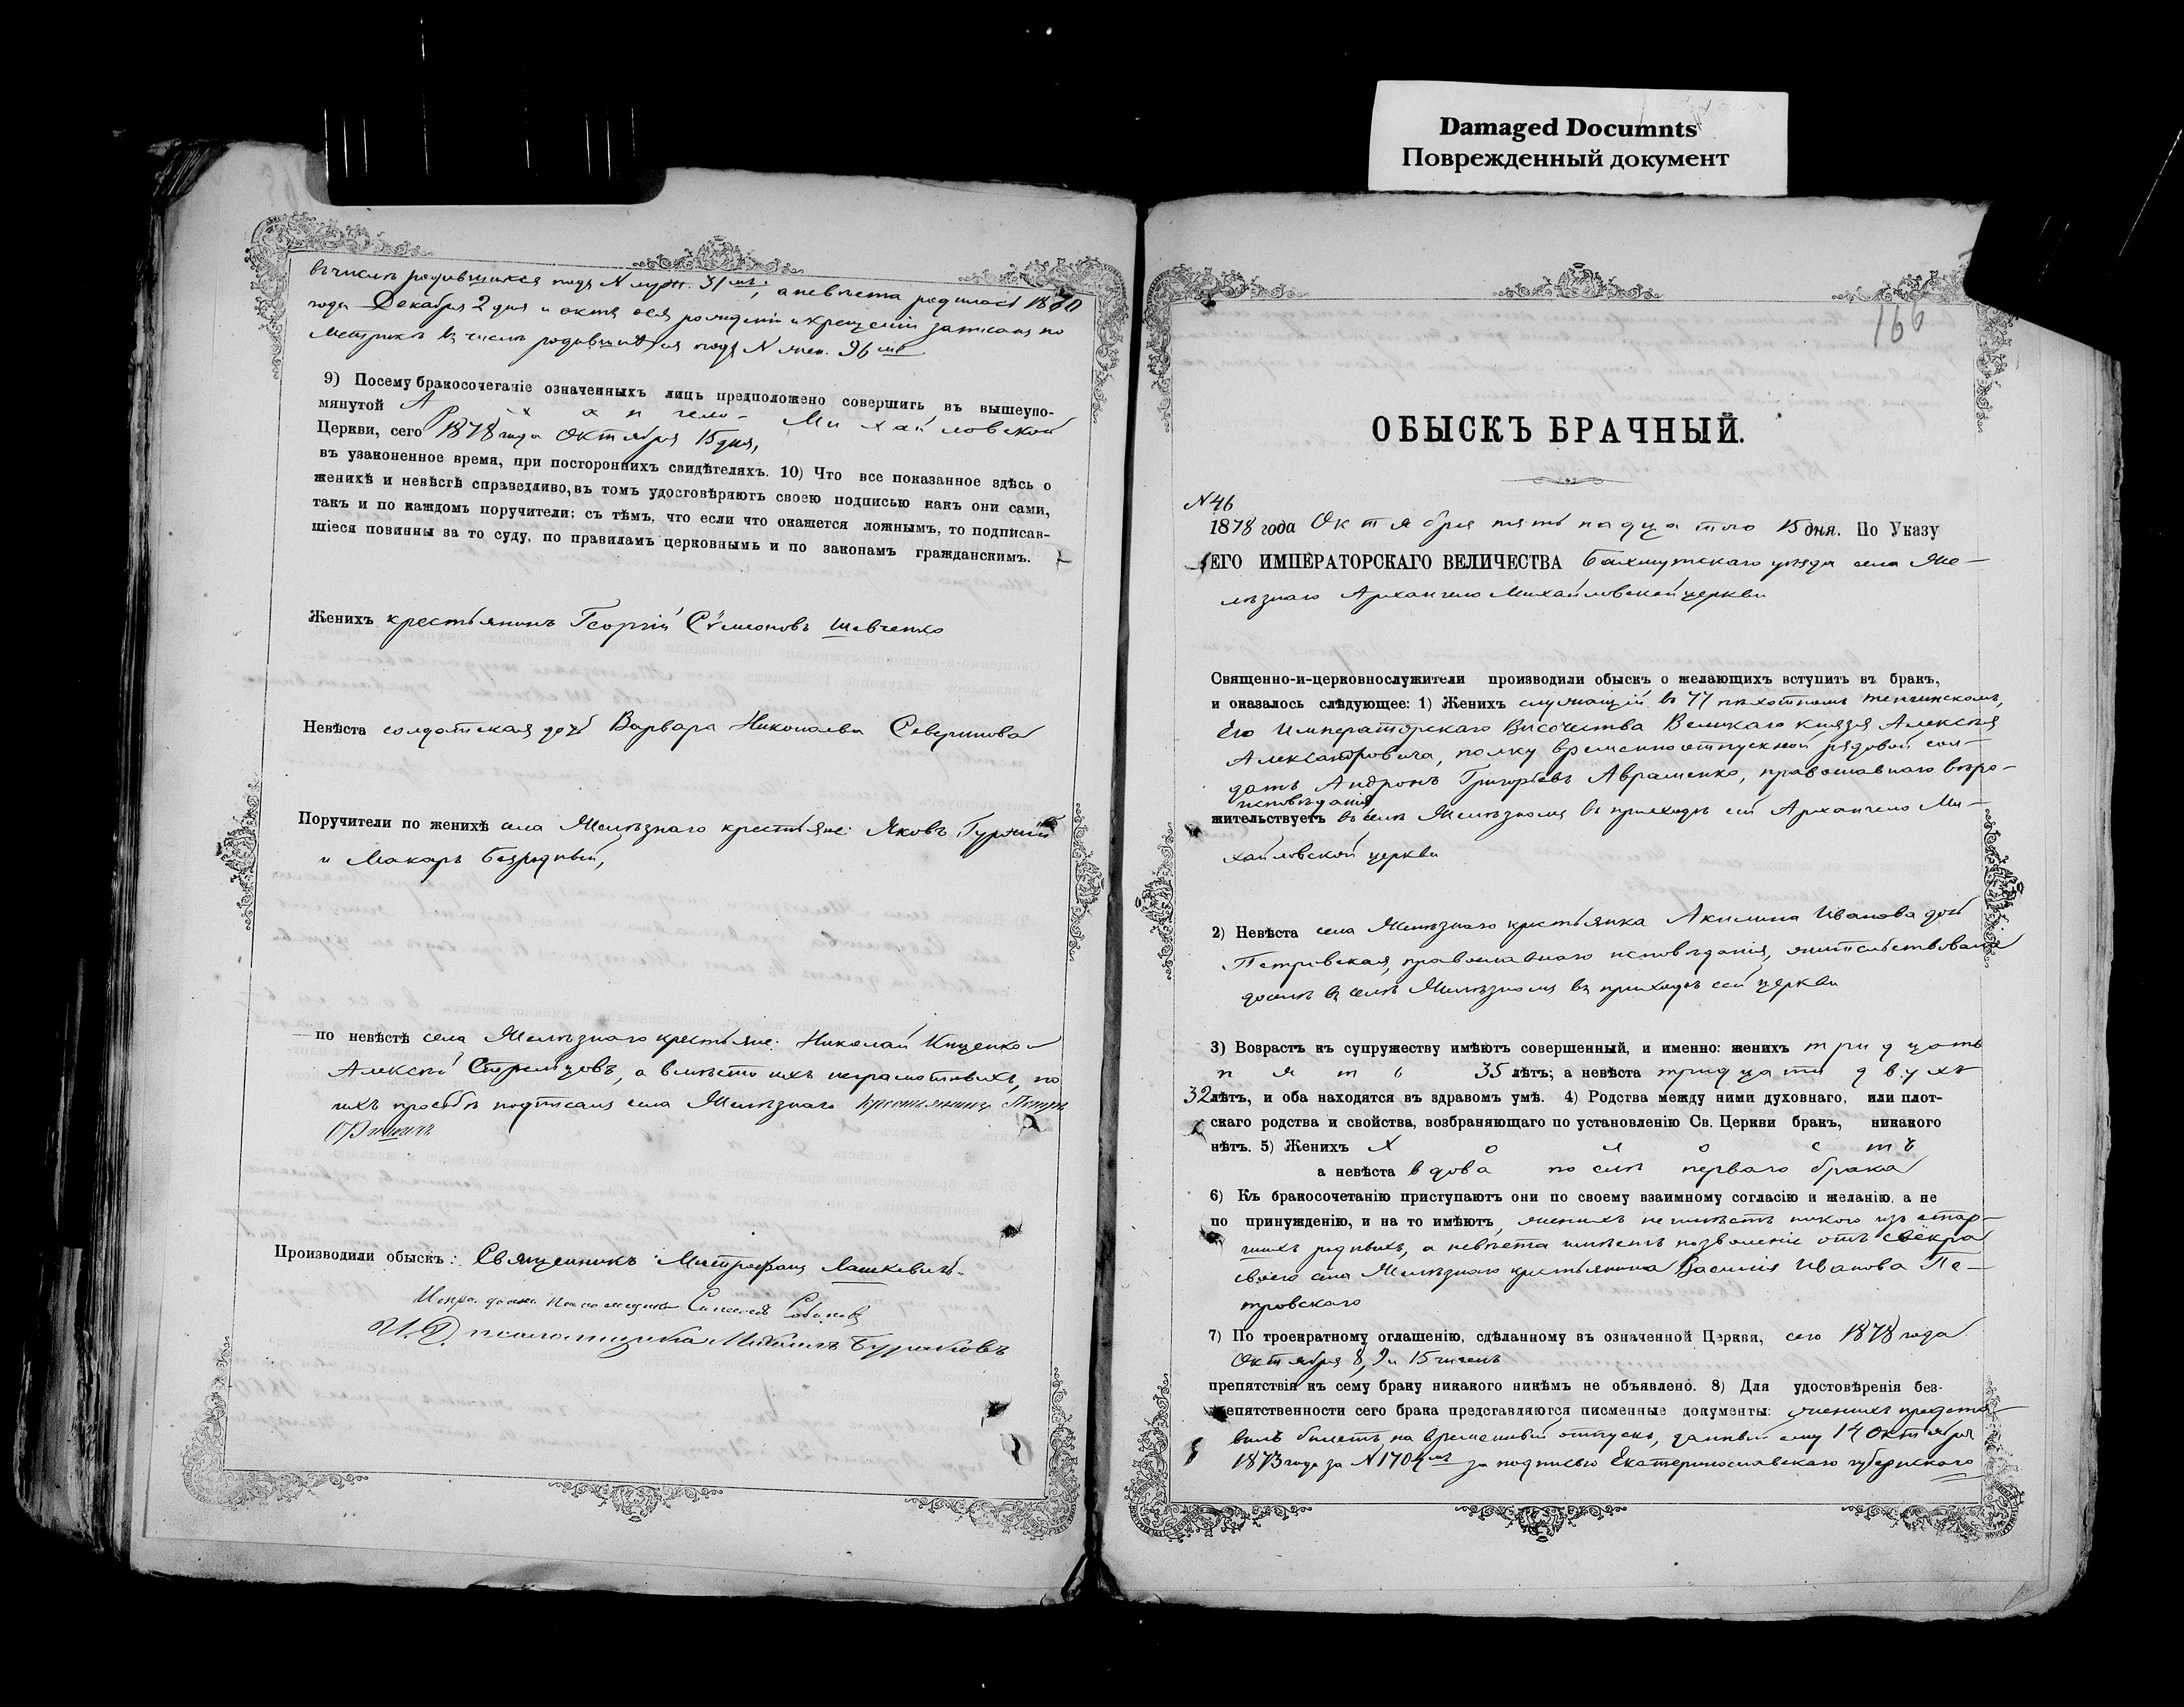 Damaged Documnts
Поврежденный документ
въ числѣ родившихся подъ N муж. 31мъ., а невѣста родилась 1860
года Декабря 2 дня и актъ о ея рожденіи и крещеніи записанъ по
метрикѣ въ числѣ родившихся подъ N жен. 36мъ
9) Посему бракосочетаніе означенныхъ лицъ предположено совершить въ вышеупо-
мянутой Архангело-Михайловской
Церкви, сего 1878 года Октября 15 дня,
въ узаконенное время, при постороннихъ свидѣтеляхъ. 10) Что все показанное здѣсь о
женихѣ и невѣстѣ справедливо, въ томъ удостовѣряютъ своею подписью какъ они сами,
такъ и по каждомъ поручители; съ тѣмъ, что если что окажется ложнымъ, то подписав-
шіеся повинны за то суду, по правиламъ церковнымъ и по законамъ гражданскимъ.
Женихъ крестьянинъ Георгій Сѵмеоновъ Шевченко
Невѣста солдатская дочь Варвара Николаева Северинова
Поручители по женихѣ села Желѣзнаго крестьяне: Яковъ Гуржій
и Макаръ Безродный,
по невѣстѣ села Желѣзнаго крестьяне: Николай Кищенко и
Алексѣй Стрельцовъ, а вмѣсто ихъ неграмотныхъ, по
ихъ прозьбѣ подписалъ села Желѣзнаго крестьянинъ Петръ
Производили обыскъ: Священникъ Митрофанъ Лашкевичъ.
Испр. должн. псаломщика
И. Д. псаломщика Михаилъ Бураковъ
166
ОБЫСКЪ БРАЧНЫЙ.
N 46
1878 года Октября пятьнадцатого 15 дня. По Указу
ЕГО ИМПЕРАТОРСКАГО ВЕЛИЧЕСТВА Бахмутскаго уѣзда села Же-
лѣзнаго Архангело Михайловской церкви
Священно-и-церковнослужители производили обыскъ о желающихъ вступить въ бракъ,
и оказалось слѣдующее: 1) Женихъ служащій въ 77 пѣхотномъ тенгинскомъ,
Его Императорскаго Высочества Великаго князя Алексѣя
Александровича, полку временноотпускной рядовой сол-
датъ Андронъ Григорьевъ Авраменко, православнаго вѣро-
исповѣданія
жительствуетъ въ селѣ Желѣзномъ въ приходѣ сей Архангело Ми-
хайловской церкви
2) Невѣста села Желѣзнаго крестьянка Акилина Иванова дочь
Петровская, православнаго исповѣданія, жительствовала
доселѣ въ селѣ Желѣзномъ въ приходѣ сей церкви
3) Возрастъ къ супружеству имѣютъ совершенный, и именно: женихъ тридцать
пять 35 лѣтъ; а невѣста тридцати двухъ
32 лѣтъ, и оба находятся въ здравомъ умѣ. 4) Родства между ними духовнаго, или плот-
скаго родства и свойства, возбраняющаго по установленію Св. Церкви бракъ, никакого
нѣтъ. 5) Женихъ холостъ
а невѣста вдова послѣ перваго брака
6) Къ бракосочетанію приступаютъ они по своему взаимному согласію и желанію, а не
по принужденію, и на то имѣютъ, женихъ не имѣетъ никого изъ стар-
шихъ родныхъ, а невѣста имѣетъ позволеніе отъ свекра
своего села Желѣзнаго крестьянина Василія Иванова Пе-
тровскаго
7) По троекратному оглашенію, сдѣланному въ означенной Церкви, сего 1878 года
Октября 8, 9 и 15 чиселъ
препятствія къ сему браку никакого никѣмъ не объявлено. 8) Для удостовѣренія без-
епятственности сего брака представляются писменные документы: женихъ предста-
вилъ билетъ на временный отпускъ, данный ему 14 Октября
1873 года за N 1704мъ за подписью Екатеринославскаго губернскаго